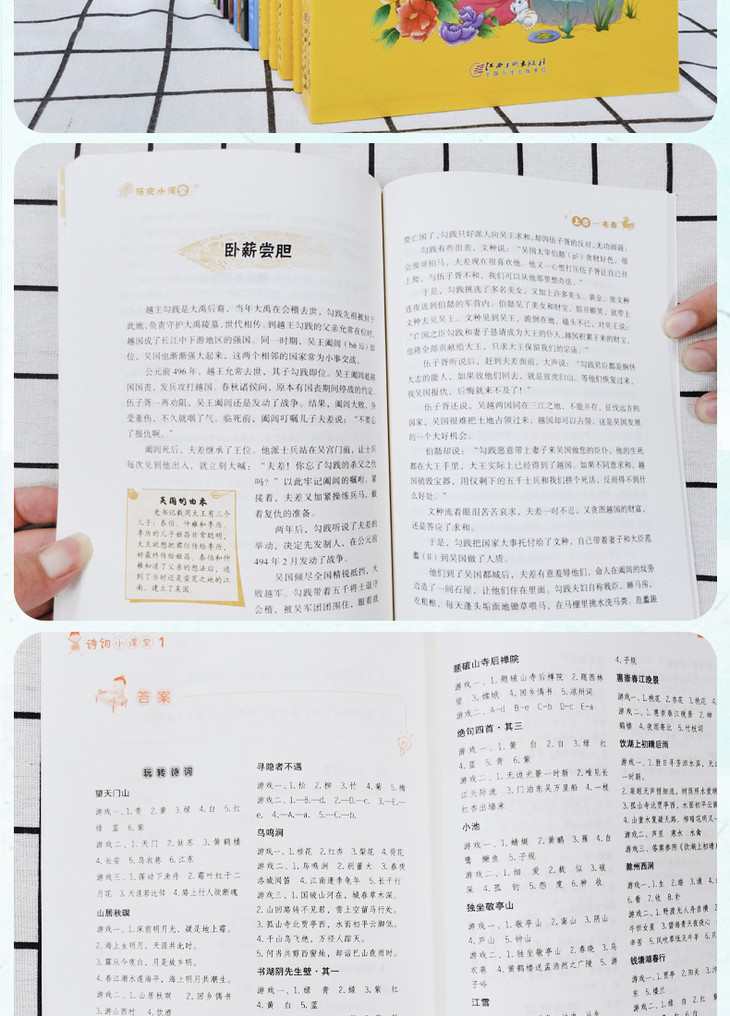 江西美术出版社
历史小课堂
卧薪尝胆
越王勾践是大禹后裔，当年大禹在会稽去世，勾践先祖被封于
此地，负责守护大禹陵墓，世代相传。到越王勾践的父亲允常在位时，
越国成了长江中下游地区的强国。同一时期，吴王阖闾（hé lǘ）即
位，吴国也渐渐强大起来，这两个相邻的国家常为小事交战。
公元前496年，越王允常去世，其子勾践即位。吴王阖闾趁越
国国丧，发兵攻打越国。春秋诸侯间，原本有国丧期间停战的约定，
伍子胥一再劝阻，吴王阖闾还是发动了战争。结果，阖闾大败，身
受重伤，不久就咽了气。临死前，阖闾叮嘱儿子夫差说：“不要忘
了报仇啊。”
阖闾死后，夫差继承了王位。他派士兵站在吴宫门前，让士兵
每次见到他出入，就立刻大喊：“夫差！你忘了勾践的杀父之仇
吗？”以此牢记阖闾的嘱咐。紧
接着，夫差又加紧操练兵马，做
着复仇的准备。
两年后，勾践听说了夫差的
举动，决定先发制人，在公元前
494年2月发动了战争。
吴国倾尽全国精锐抵挡，大
败越军。勾践带着五千将士退守
会稽，被吴军团团围住，眼看就
吴国的由来
史书记载周太王有三个
儿子：泰伯、仲雍和季历。
季历的儿子姬昌非常聪明，
太王就想把君位传给季历，
好最终传给姬昌。泰伯和仲
雍知道了父亲的想法后，逃
到了当时还是蛮荒之地的江
南，建立了吴国。
上古—先秦
要亡国了，勾践只好派人向吴王求和，却因伍子胥的反对，无功而返。
勾践有些沮丧。文种说：“吴国太宰伯嚭（pǐ）贪财好色，很
会溜须拍马，夫差现在很喜欢他。他又一心想打压伍子胥让自己往
上爬，与伍子胥不和，我们可以从他那里想办法。”
于是，勾践挑选了多名美女，又加上许多美玉、黄金，派文种
连夜送到伯嚭的军营内。伯嚭见了美女和财宝，眉开眼笑，就带上
文种去见吴王。文种见到吴王，跪倒在地，磕头不已，对吴王说：
“亡国之臣勾践和妻子恳请成为大王的仆人，越国积累下来的财宝，
也将全部贡献给大王，只求大王保留我们的宗庙。”
伍子胥听说后，赶到夫差面前，大声说：“勾践君臣都是胸怀
大志的能人，如果放他们回去，就是放虎归山。等他们恢复过来，
找吴国报仇，后悔就来不及了！”
伍子胥还说，吴越两国同在三江之地，不能并存。征伐远方的
国家，吴国很难把土地占领过来，越国却可以占领。这是吴国发展
的一个大好机会。
伯嚭却说：“勾践愿意带上妻子来吴国做您的臣仆，他的生死
都在大王手里，大王实际上已经得到了越国。如果不同意求和，越
国销毁宝器，用仅剩下的五千士兵和我们拼个死活，反而得不到什
么好处。”
文种流着眼泪苦苦哀求，夫差一时不忍，又贪图越国的财富，
还是答应了求和。
于是，勾践把国家大事托付给了文种，自己带着妻子和大臣范
蠡（lǐ）到吴国做了人质。
他们到了吴国都城后，夫差有意羞辱他们，命人在阖闾的坟旁
边造了一间石屋，让他们住在里面。勾践夫妇自称贱臣，睡马房，
吃粗粮，每天蓬头垢面地锄草喂马，在马棚里挑水洗马粪。范蠡跟
诗词小课堂 1
答案
玩转诗词
望天门山
游戏一、1.青 2.黄 3.绿 4.白 5.红
绿 蓝 6.紫
游戏二、1.天门 2.姑苏 3.黄鹤楼
4.长安 5.乌衣巷 6.江东
游戏三、1.莲动下渔舟 2.霜叶红于二
月花 3.天涯若比邻 4.路上行人欲断魂
山居秋暝
游戏一、1.床前明月光，疑是地上霜。
2.海上生明月，天涯共此时。
3.露从今夜白，月是故乡明。
4.春江潮水连海平，海上明月共潮生。
游戏二、1.山居秋暝 2.回乡偶书
3.游山西村 4.饮酒
寻隐者不遇
游戏一、1.松 2.柳 3.竹 4.菊 5.梅
鸟鸣涧
游戏一、1.桂花 2.红杏 3.梨花 4.荷花
游戏二、1.鸟鸣涧 2.别董大 3.春夜
洛城闻笛 4.江南逢李龟年 5.长干行
游戏三、1.国破山河在，城春草木深。
2.山回路转不见君，雪上空留马行处。
3.孤山寺北贾亭西，水面初平云脚低。
4.千山鸟飞绝，万径人踪灭。
5.何当共剪西窗烛，却话巴山夜雨时。
书湖阴先生壁·其一
游戏一、1.绿 青 2.绿 3.紫 红
4.黄 白 5.蓝
题破山寺后禅院
游戏一、1.题破山寺后禅院 2.题西林
壁 3.嫦娥 4.回乡偶书 5.凉州词
游戏二、A-d B-e C-b D-c E-a
绝句四首·其三
游戏一、1.黄 白 2.白 3.绿 红
4.蓝 5.青 6.紫
游戏二、1.无边光景一时新 2.唯见长
江天际流 3.门泊东吴万里船 4.一枝
红杏出墙来
小池
游戏一、1.蜻蜓 2.黄鹂 3.雁 4.白
鹭 鳜鱼 5.子规
游戏二、1.细 爱 2.裁 似 3.破
深 4.孤 钓 5.怨 度 6.种 收
独坐敬亭山
游戏一、1.敬亭山 2.庐山 3.阴山
4.芦山 5.钟山
游戏二、1.独坐敬亭山 2.春晓 3.乌
衣巷 4.黄鹤楼送孟浩然之广陵 5.游
子吟
江雪
4.子规
惠崇春江晚景
游戏一、1.桃花 2.杏花 3.桃花
游戏二、1.惠崇春江晚景 2.
鹤楼 4.夜雨寄北 5.竹枝词
饮湖上初晴后雨
游戏一、1.胜日寻芳泗水滨，
一时新。
2.泉眼无声惜细流，树阴照水爱
3.孤山寺北贾亭西，水面初平云
4.山重水复疑无路，柳暗花明又一
游戏二、
游戏三、答案参照《饮湖上初晴
滁州西涧
钱塘湖春行